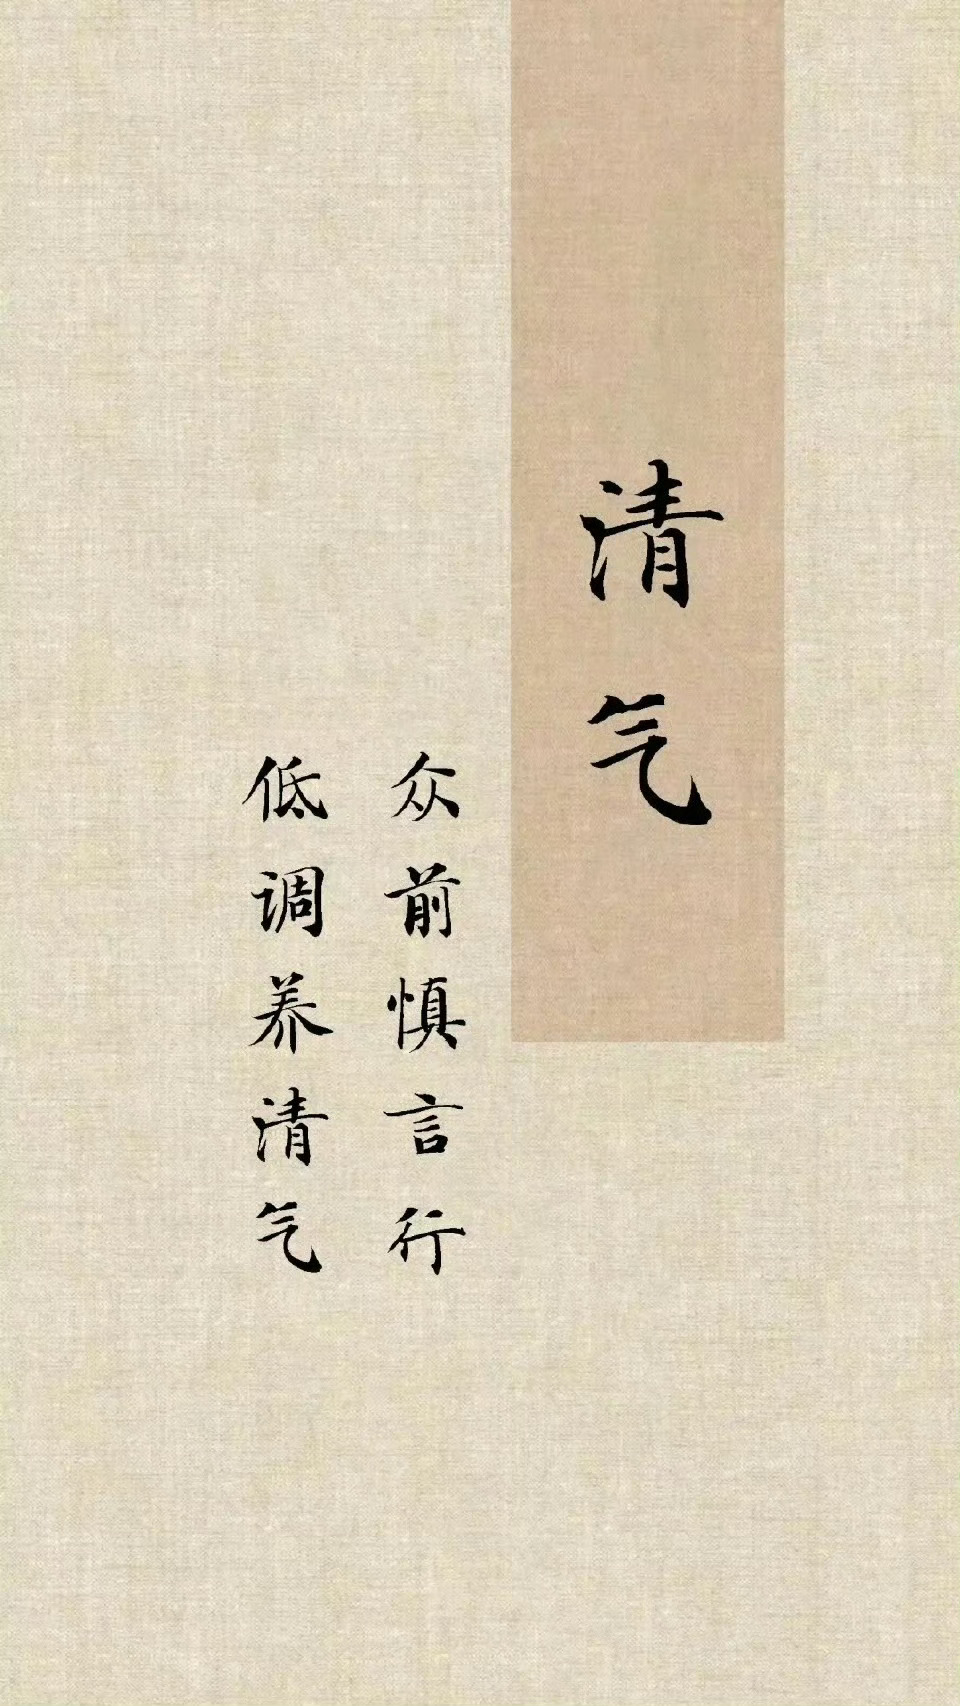 清气
众前慎言行
低调养清气